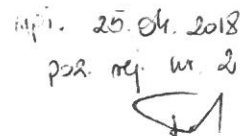 wpł. 25.04.2018
poz. rej. nr. 2